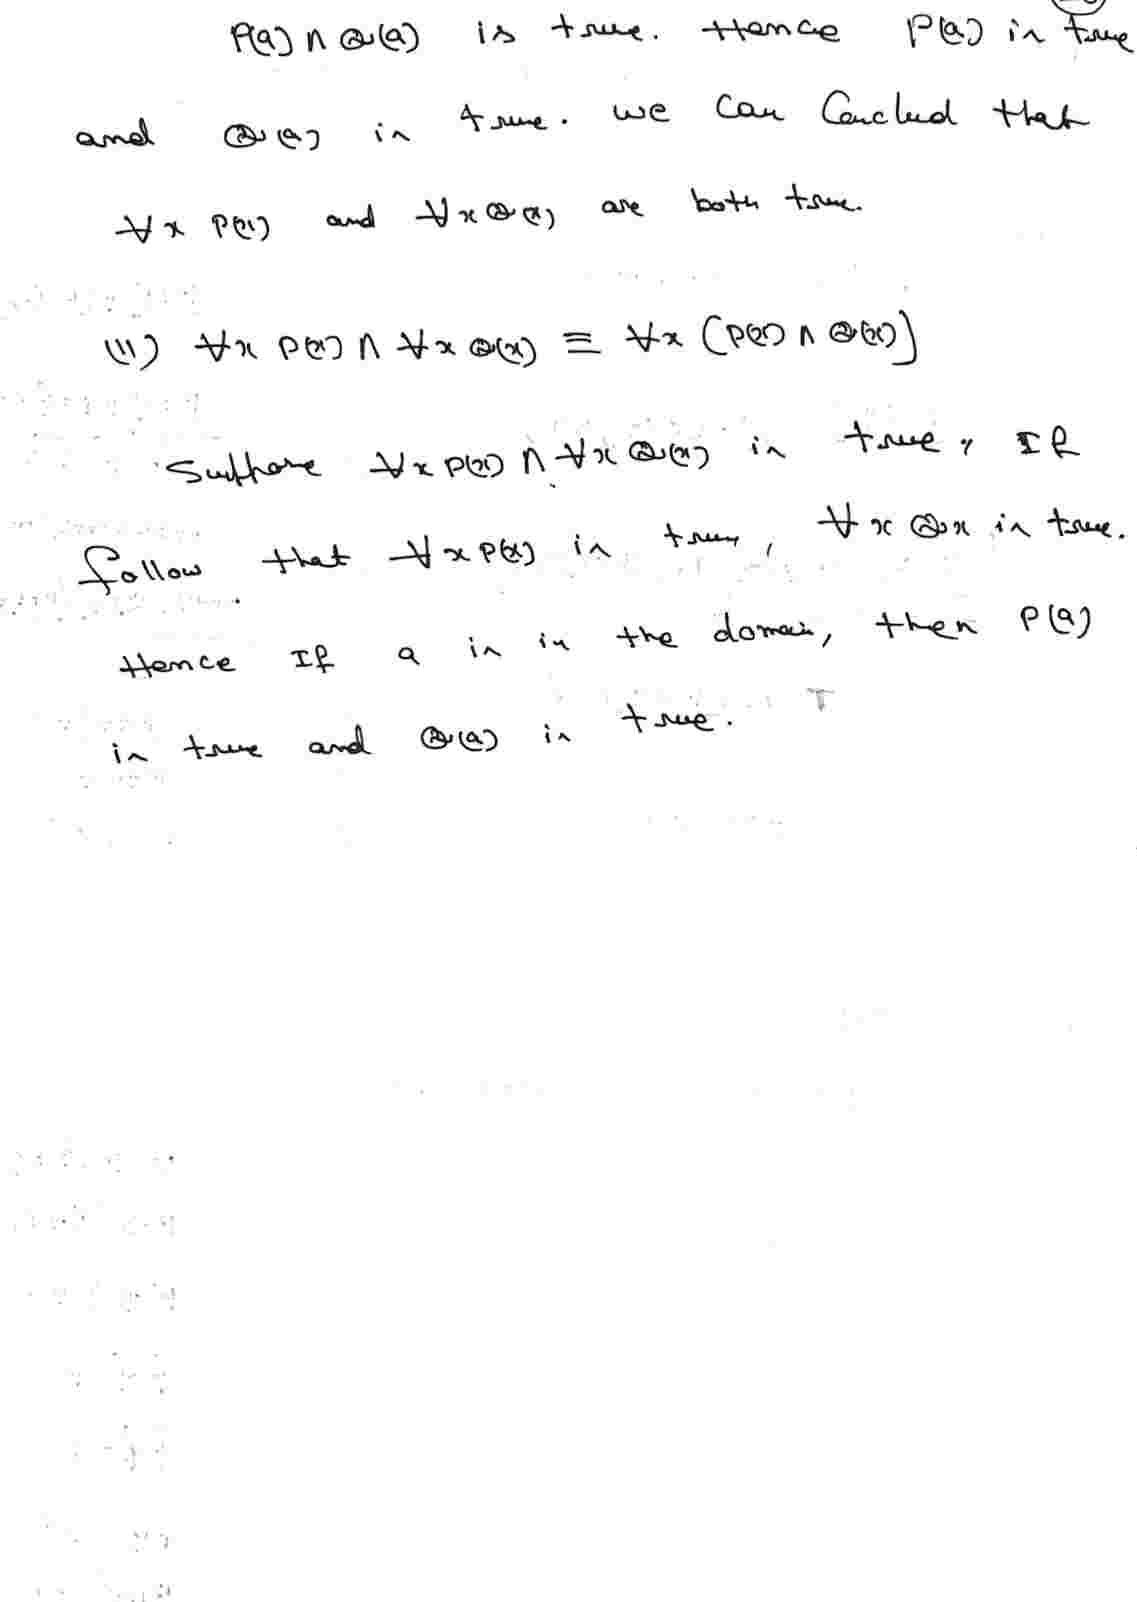 P(a) ∧ Q(a) is true. Hence P(a) is true
and Q(a) is true. we can Conclud that
∀x P(x) and ∀x Q(x) are both true.
(11) ∀x P(x) ∧ ∀x Q(x) ≡ ∀x (P(x) ∧ Q(x)]
Suppose ∀x P(x) ∧ ∀x Q(x) is true, If
follow that ∀x P(x) is true, ∀x Qx is true.
Hence If a is in the domain, then P(a)
is true and Q(a) is true. T